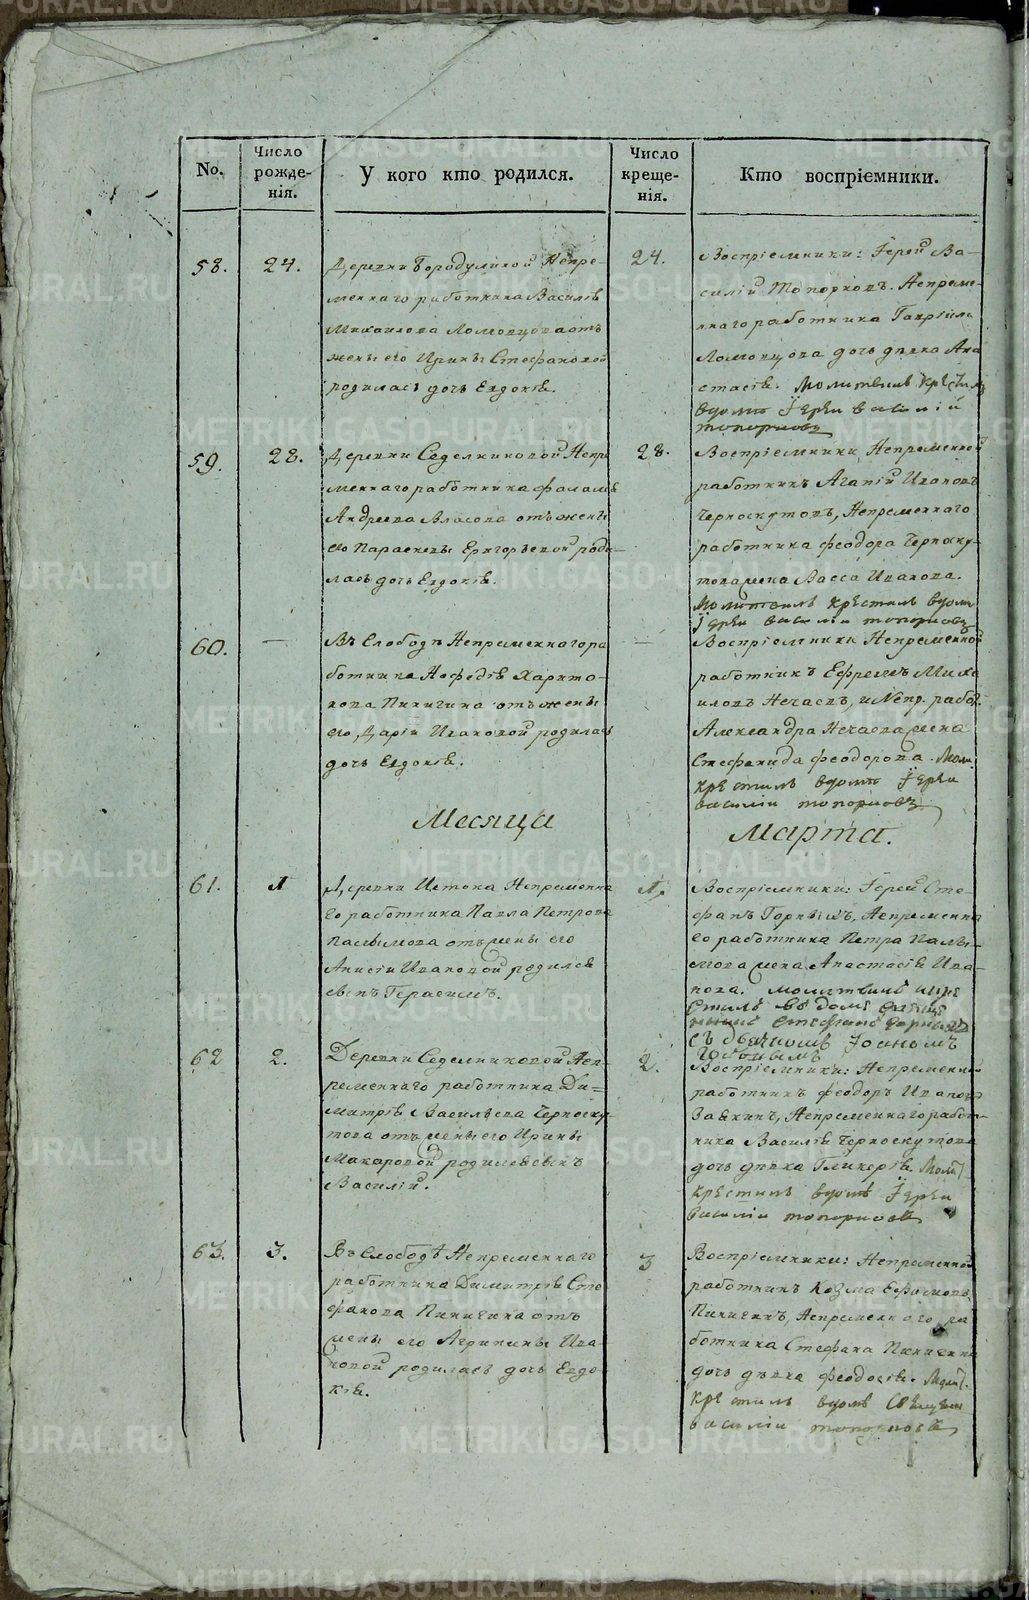 No.
Число рожде-нія.
У кого кто родился.
Число креще-нія.
Кто воспріемники.
58.
24.
Деревни Бородулиной Непре-
меннаго работника Василія
Михаилова Ломовцова отъ
жены его Ирины Стефановой
родилась дочь Евдокія.
24.
Воспріемники: Іерей Ва-
силій Топорковъ. Непреме-
ннаго работника Гавріила
Ломовцова дочь дѣвка Ана
стасія. Молитвилъ крестилъ
вдомѣ Іереи василій
топорковъ
59.
28.
Деревни Седелниковой Непре
меннаго работника фалалѣя
Андреева Власова отъ жены
его Параскевы Григорьевой роди-
лась дочь Евдокія.
28.
Воспріемники Непременной
работникъ Агапій Ивановъ
Черноскутовъ, Непременнаго
работника Феодора Черноску-
това жена Васса Иванова.
Молитвилъ крестилъ вдомѣ
Іереи василіи топорковъ
60.
—
Въ Слободѣ Непременнаго ра
ботника Нефедія Харито-
нова Пинигина отъ жены
его Дарьи Ивановой родилась
дочь Евдокія.
—
Воспріемники Непременной
работникъ Ефремъ Миха
иловъ Нечаевъ, и Непр. работ.
Александра Нечаева жена
Стефанида Феодорова. Моли.
крестилъ вдомѣ Іереи
василіи топорковъ
Месяца
Марта.
61.
1
Деревни Истока Непременна
го работника Павла Петрова
Палымова отъ жены его
Анисіи Ивановой родился
сынъ Герасимъ.
1,
Воспріемники: Іерей Сте-
фанъ Горныхъ, Непременна
го работника Петра Палы-
мова жена Анастасія Ива-
нова. молитвилъ икре
стилъ въ доме
съ дьячкомъ Іоаномъ
62
2.
Деревни Седелниковой Неп-
ременнаго работника Ди-
митрія Васильева Черноску-
това отъ жены его Ирины
Макаровой родился сынъ
Василій.
2.
Воспріемники: Непременный
работникъ Феодоръ Ивановъ
Заякинъ, Непременнаго работ-
ника Василія Черноскутова
дочь дѣвка Гликерія. Молит
крестилъ вдомѣ Іереи
василіи топорковъ
63.
3.
Въ Слободѣ Непременнаго
работника Димитрія Сте
фанова Пинигина отъ
жены его Агрипены Ива-
новой родилась дочь Евдо-
кія.
3
Воспріемники: Непременной
работникъ Козма Ефимовъ
Пинигинъ, Непременнаго ра
ботника Стефана Пинигина
дочь дѣвка Феодосія. Молит.
крестилъ вдомѣ Священ
василіи топорковъ
METRIKI.GASO-URAL.RU